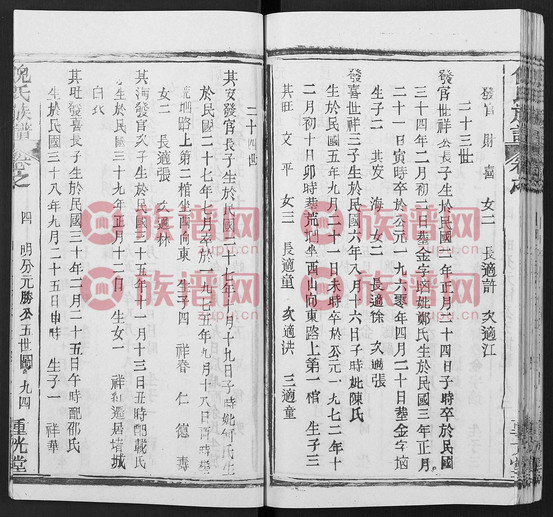 發官 財 喜 女二 長適許 次適江
二十三世
發官世祥公長子生於民國 年正月二十四日子時卒於民國
三十四年二月初 日塟金字凹妣鄭氏生於民國三年正月
二十一日寅時卒於公元一九六零年四月二十日塟金字垴
生子二 其發 海 女二 長適徐 次適張
發喜世祥三子生於民國六年八月 六日子時妣陳氏
生於民國五年 二十一日未時卒於公元一九七二年十
二月初十日卯時塟荒 山西山向東路上第一棺 生子三
其旺 文 平 女三 長適董 次適洪 三適童
二十四世
其發發官長子生於民國二十七年 月十九日子時妣何氏生
於民國二十七年七月 卒於一九 五年九月十八日酉時塟
荒 路上第二棺坐西向東 生子四 祥春 仁 德 壽
女二 長適張 次適林
其海發官次子生於民國三十五年 一月十三日丑時配戴氏
生於民國三十九年正月十二日 生女一 祥紅適居堵城
白衣
其旺發喜長子生於民國三十年二月二十五日午時配邵氏
生於民國三十八年九月二十五日申時 生子一 祥華
倪氏族譜 卷之 四 明分元勝公五世圖 九四 重光堂
族譜网
zupu.cn